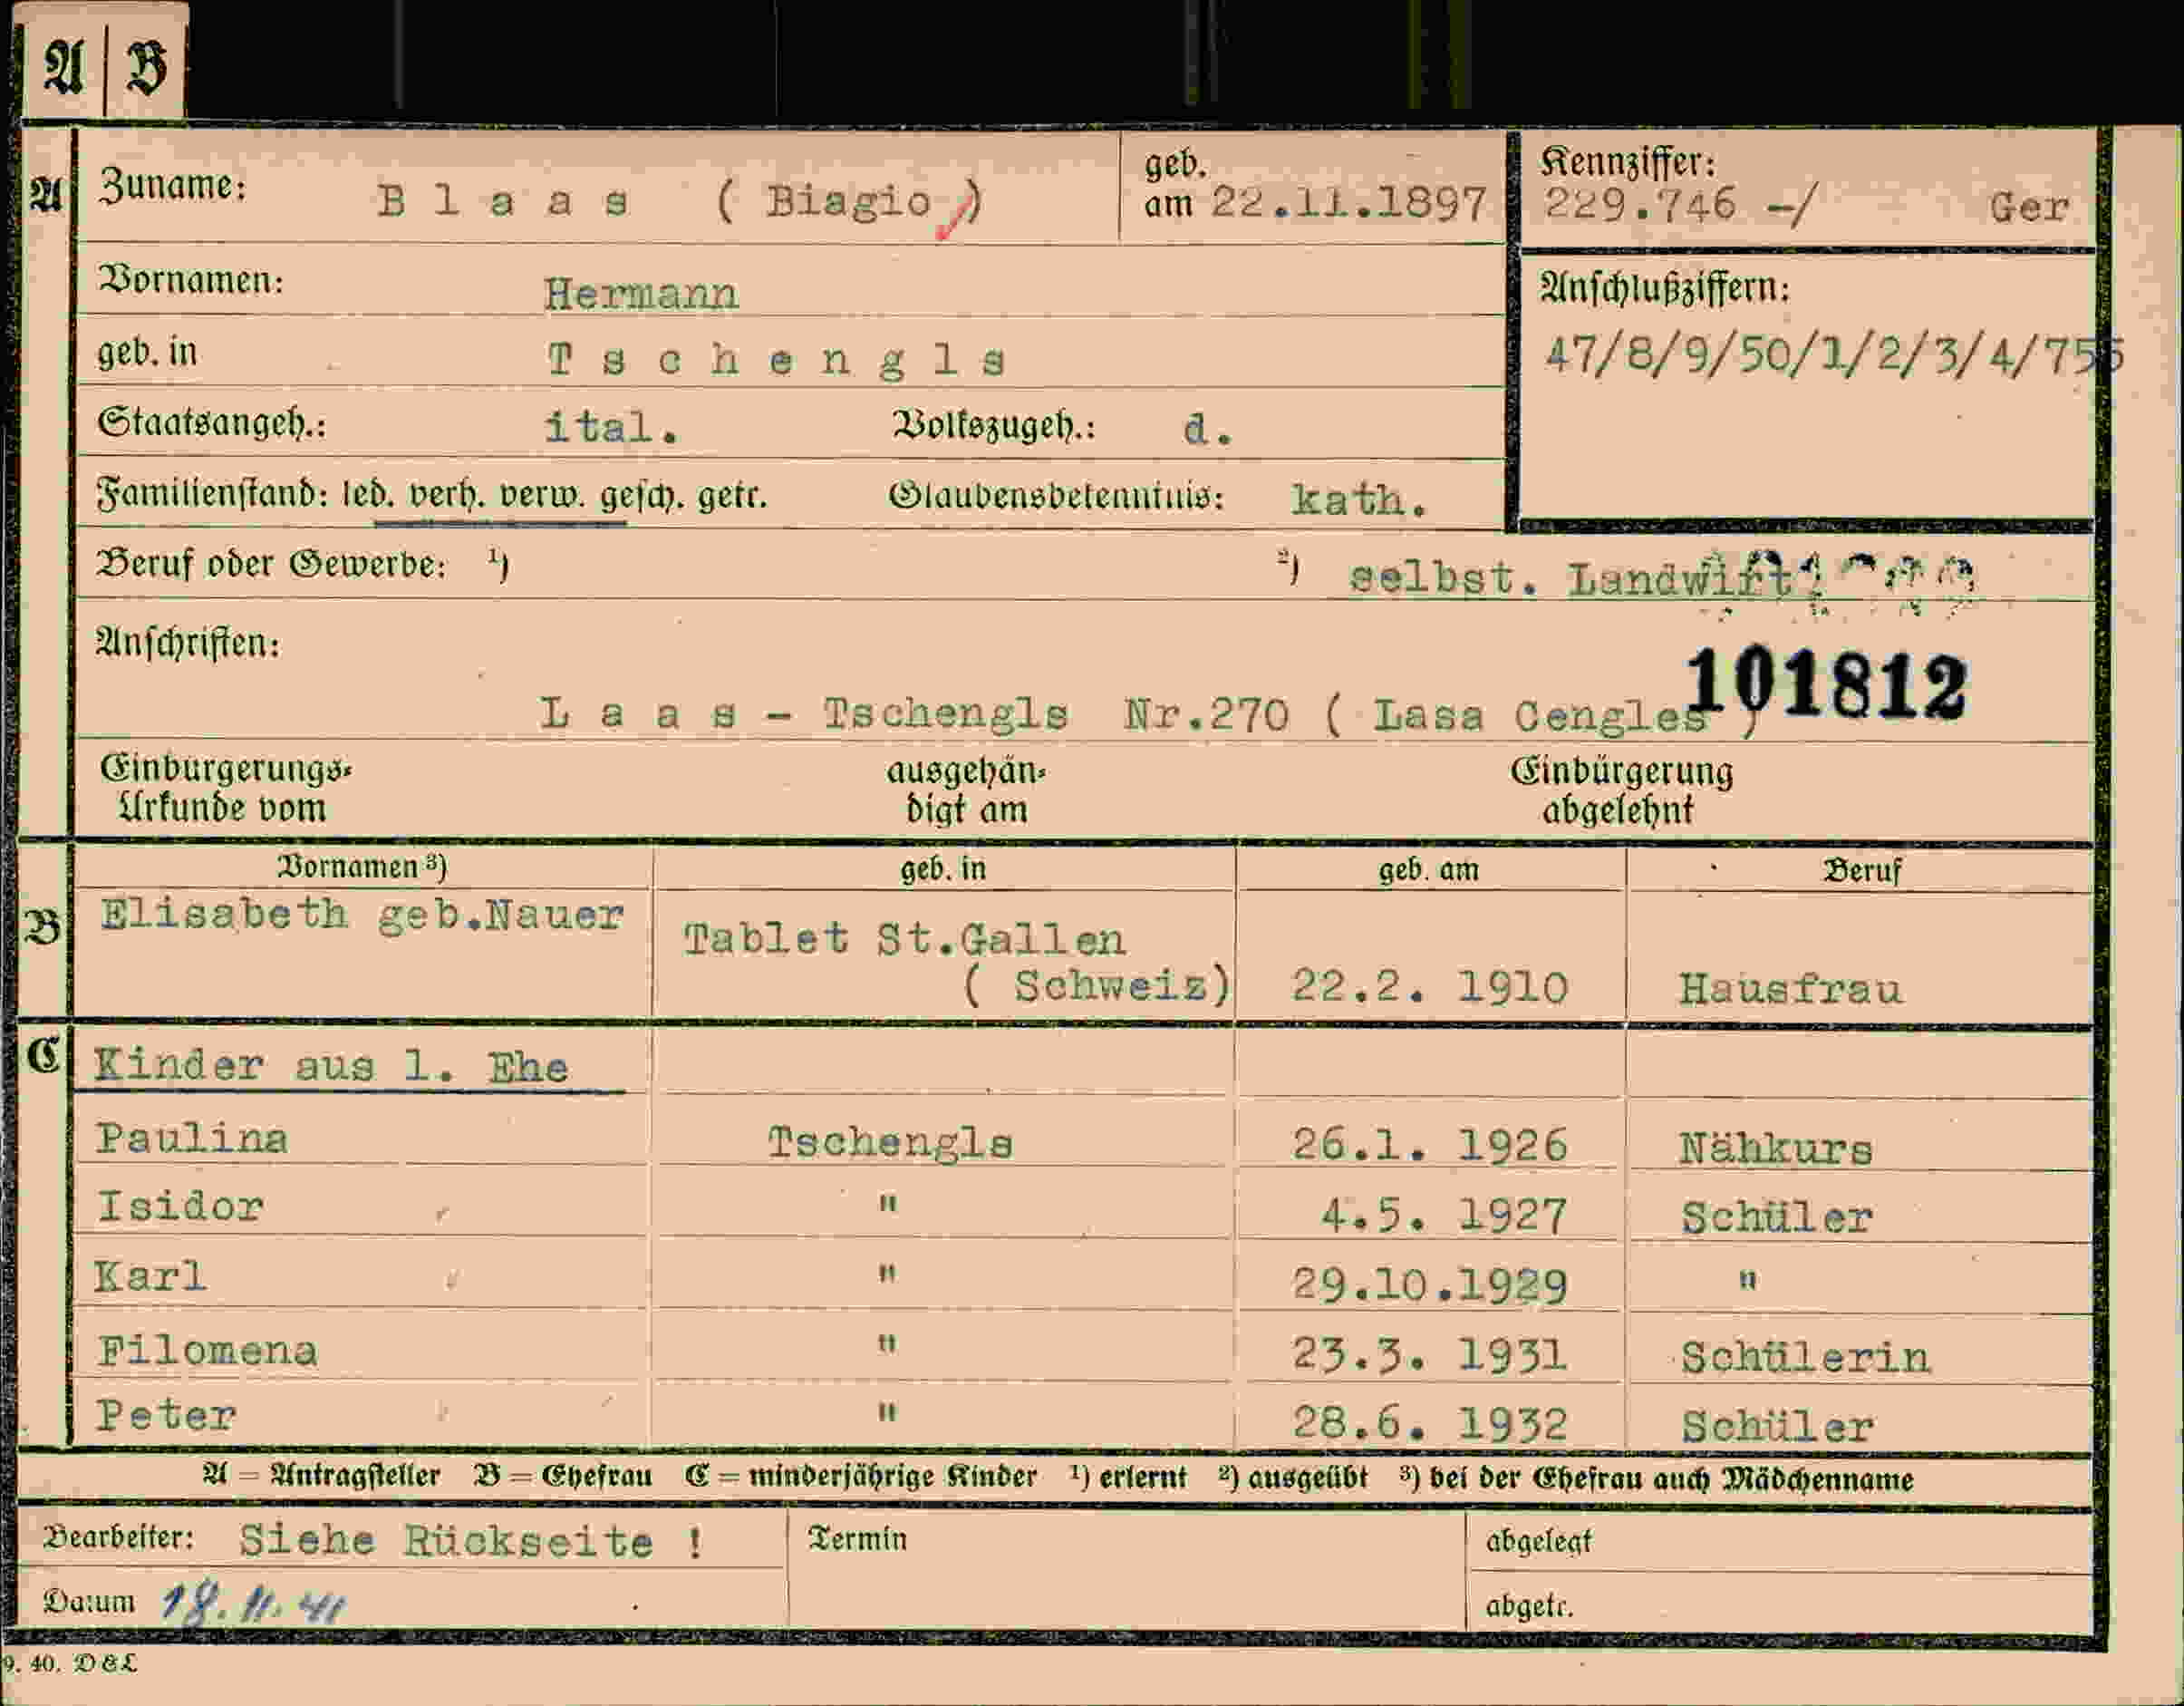 A B
A Zuname: Blaas (Biagio) geb. am 22.11.1897 Kennziffer: 229.746 -/ Ger
Vornamen: Hermann Anschlußziffern:
geb. in Tschengls 47/8/9/50/1/2/3/4/755
Staatsangeh.: ital. Volkszugeh.: d.
Familienstand: led. verh. verw. gesch. getr. Glaubensbekenntnis: kath.
Beruf oder Gewerbe: ¹) ²) selbst. Landwirt
Anschriften:
101812
Laas - Tschengls Nr.270 ( Lasa Cengles )
Einbürgerungs- ausgehän- Einbürgerung
Urkunde vom digt am abgelehnt
Vornamen ³) geb. in geb. am Beruf
B Elisabeth geb.Nauer Tablet St.Gallen
( Schweiz) 22.2. 1910 Hausfrau
C Kinder aus 1. Ehe
Paulina Tschengls 26.1. 1926 Nähkurs
Isidor " 4.5. 1927 Schüler
Karl " 29.10.1929 "
Filomena " 23.3. 1931 Schülerin
Peter " 28.6. 1932 Schüler
A = Antragsteller B = Ehefrau C = minderjährige Kinder ¹) erlernt ²) ausgeübt ³) bei der Ehefrau auch Mädchenname
Bearbeiter: Siehe Rückseite ! Termin abgelegt
Datum 18.11.41 abgetr.
9. 40. D & L